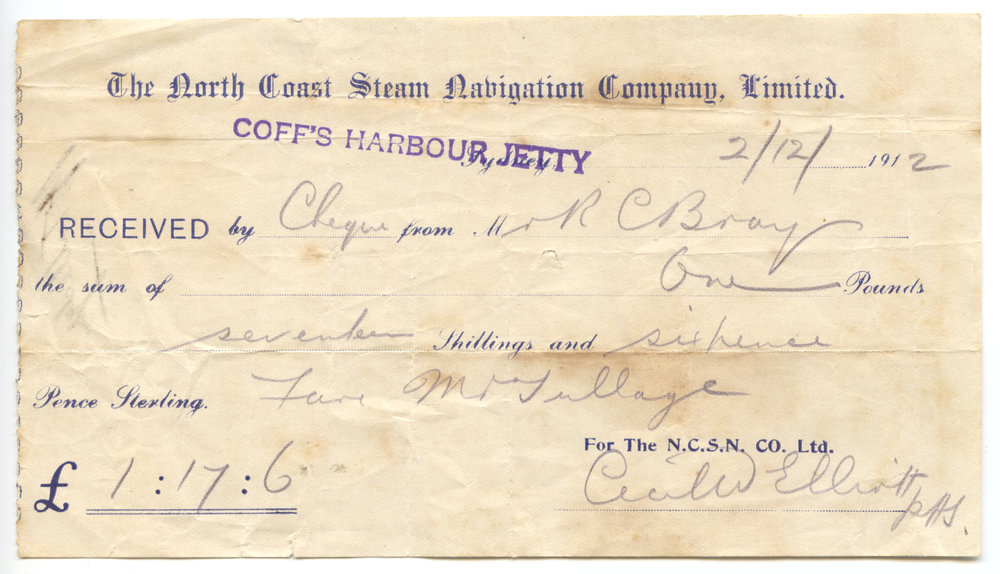 The North Coast Steam Navigation Company, Limited.
COFF'S HARBOUR JETTY
Sydney, 2/12/ 1912
RECEIVED by Cheque from Mr R C Bray
the sum of One Pounds
seventeen Shillings and sixpence
Pence Sterling. Fare Mr Tullage
For The N.C.S.N. CO. Ltd.
£ 1:17:6 Cecil W Elliott